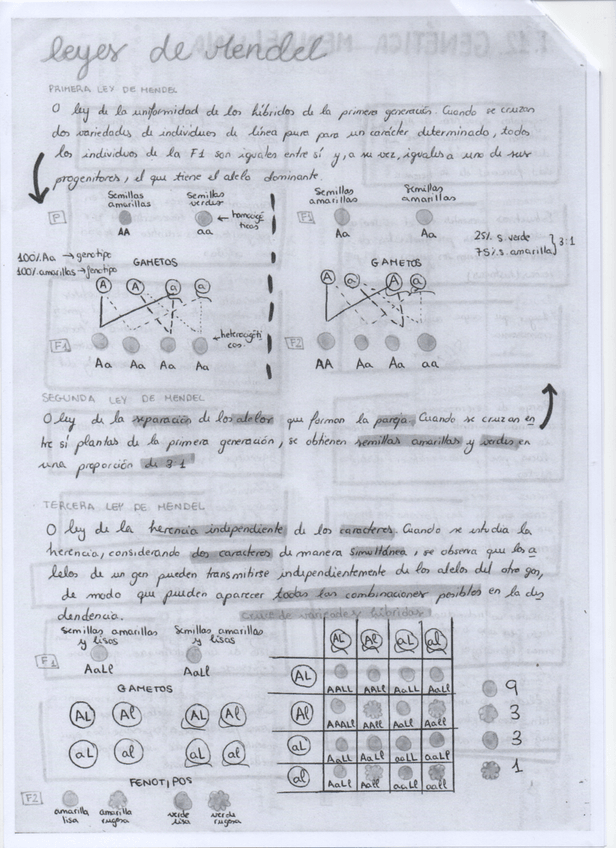 leyes de Mendel
PRIMERA LEY DE MENDEL
O ley de la uniformidad de los híbridos de la primera generación. Cuando se cruzan
dos variedades de individuos de línea pura para un carácter determinado, todos
los individuos de la F1 son iguales entre sí y, a su vez, iguales a uno de sus
progenitores, el que tiene el alelo dominante.
P
Semillas amarillas
Semillas verdes
AA
aa
← homocigóticos
100% Aa → genotipo
100% amarillas → fenotipo
GAMETOS
A A a a
F1
← heterocigóticos
Aa Aa Aa Aa
F1
Semillas amarillas
Semillas amarillas
Aa
Aa
25% s. verde
75% s. amarilla
3:1
GAMETOS
A a A a
F2
AA Aa Aa aa
SEGUNDA LEY DE MENDEL
O ley de la separación de los alelos que forman la pareja. Cuando se cruzan en
tre sí plantas de la primera generación, se obtienen semillas amarillas y verdes en
una proporción de 3:1
TERCERA LEY DE MENDEL
O ley de la herencia independiente de los caracteres. Cuando se estudia la
herencia, considerando dos caracteres de manera simultánea, se observa que los a
lelos de un gen pueden transmitirse independientemente de los alelos del otro gen,
de modo que pueden aparecer todas las combinaciones posibles en la des
dendencia.
Semillas amarillas y lisos
Semillas amarillas y lisas
F1
AaLl
AaLl
GAMETOS
AL Al AL Al
aL al aL al
FENOTIPOS
F2
amarilla lisa
amarilla rugosa
verde lisa
verde rugosa
AL Al aL al
AL
AALL AALl AaLL AaLl
Al
aL
al
9
3
3
1